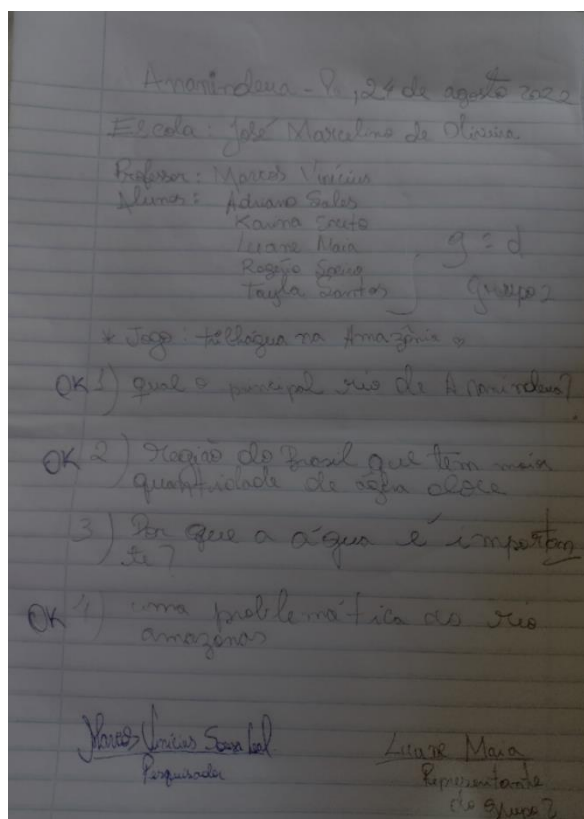 Ananindeua - Pa, 24 de agosto 2022
Escola: José Marcelino de Oliveira
Professor: Marcos Vinícius
Alunos: Adriano Sales
Kauna
Luane Maia
Rogério
Tayla Santos
g = d
grupo 2
* Jogo: trilhágua na Amazônia
OK 1) qual o principal rio de Ananindeua?
OK 2) região do Brasil que têm mais
quantidade de água doce
3) Por que a água é importan
te?
OK 4) uma problemática do rio
amazonas
Marcos Vinícius Sousa Leal
Pesquisador
Luane Maia
Representante
do grupo 2